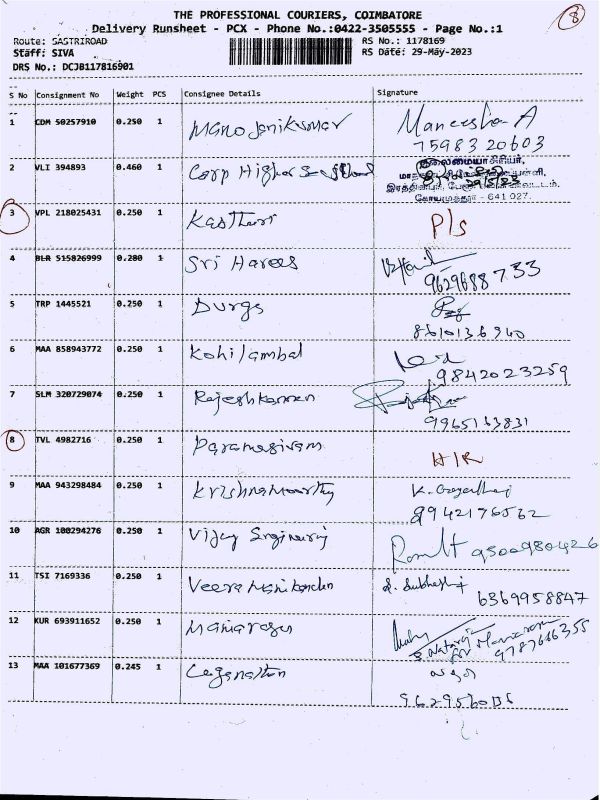 8
THE PROFESSIONAL COURIERS, COIMBATORE
Delivery Runsheet - PCX - Phone No.:0422-3505555 - Page No.:1
Route: SASTRIROAD RS No.: 1178169
Staff: SIVA RS Date: 29-May-2023
DRS No.: DCJB117816901
S No Consignment No Weight PCS Consignee Details Signature
1 CDM 50257910 0.250 1 Manojanikumar Maneesha A
7598320603
2 VLI 394893 0.460 1 Corp Higher தலைமையாசிரியர்,
கோயமுத்தூர் - 641 027.
3 VPL 218025431 0.250 1 Kasthuri P/s
4 BLR 515826999 0.280 1 Sri Harees
9629688733
5 TRP 1445521 0.250 1 Durga
8610136940
6 MAA 858943772 0.250 1 Kohilambal
9842023259
7 SLM 320729074 0.250 1 Rajeshkannan
9965163831
8 TVL 4982716 0.250 1 Paramasivam H/R
9 MAA 943298484 0.250 1 Krishnamoorthy K.
9942176562
10 AGR 100294276 0.250 1 Vijay 9500980426
11 TSI 7169336 0.250 1 Veeramanikandan S. Subhash
6369958847
12 KUR 693911652 0.250 1 Maniarasu
9787666355
13 MAA 101677369 0.245 1 Loganathan